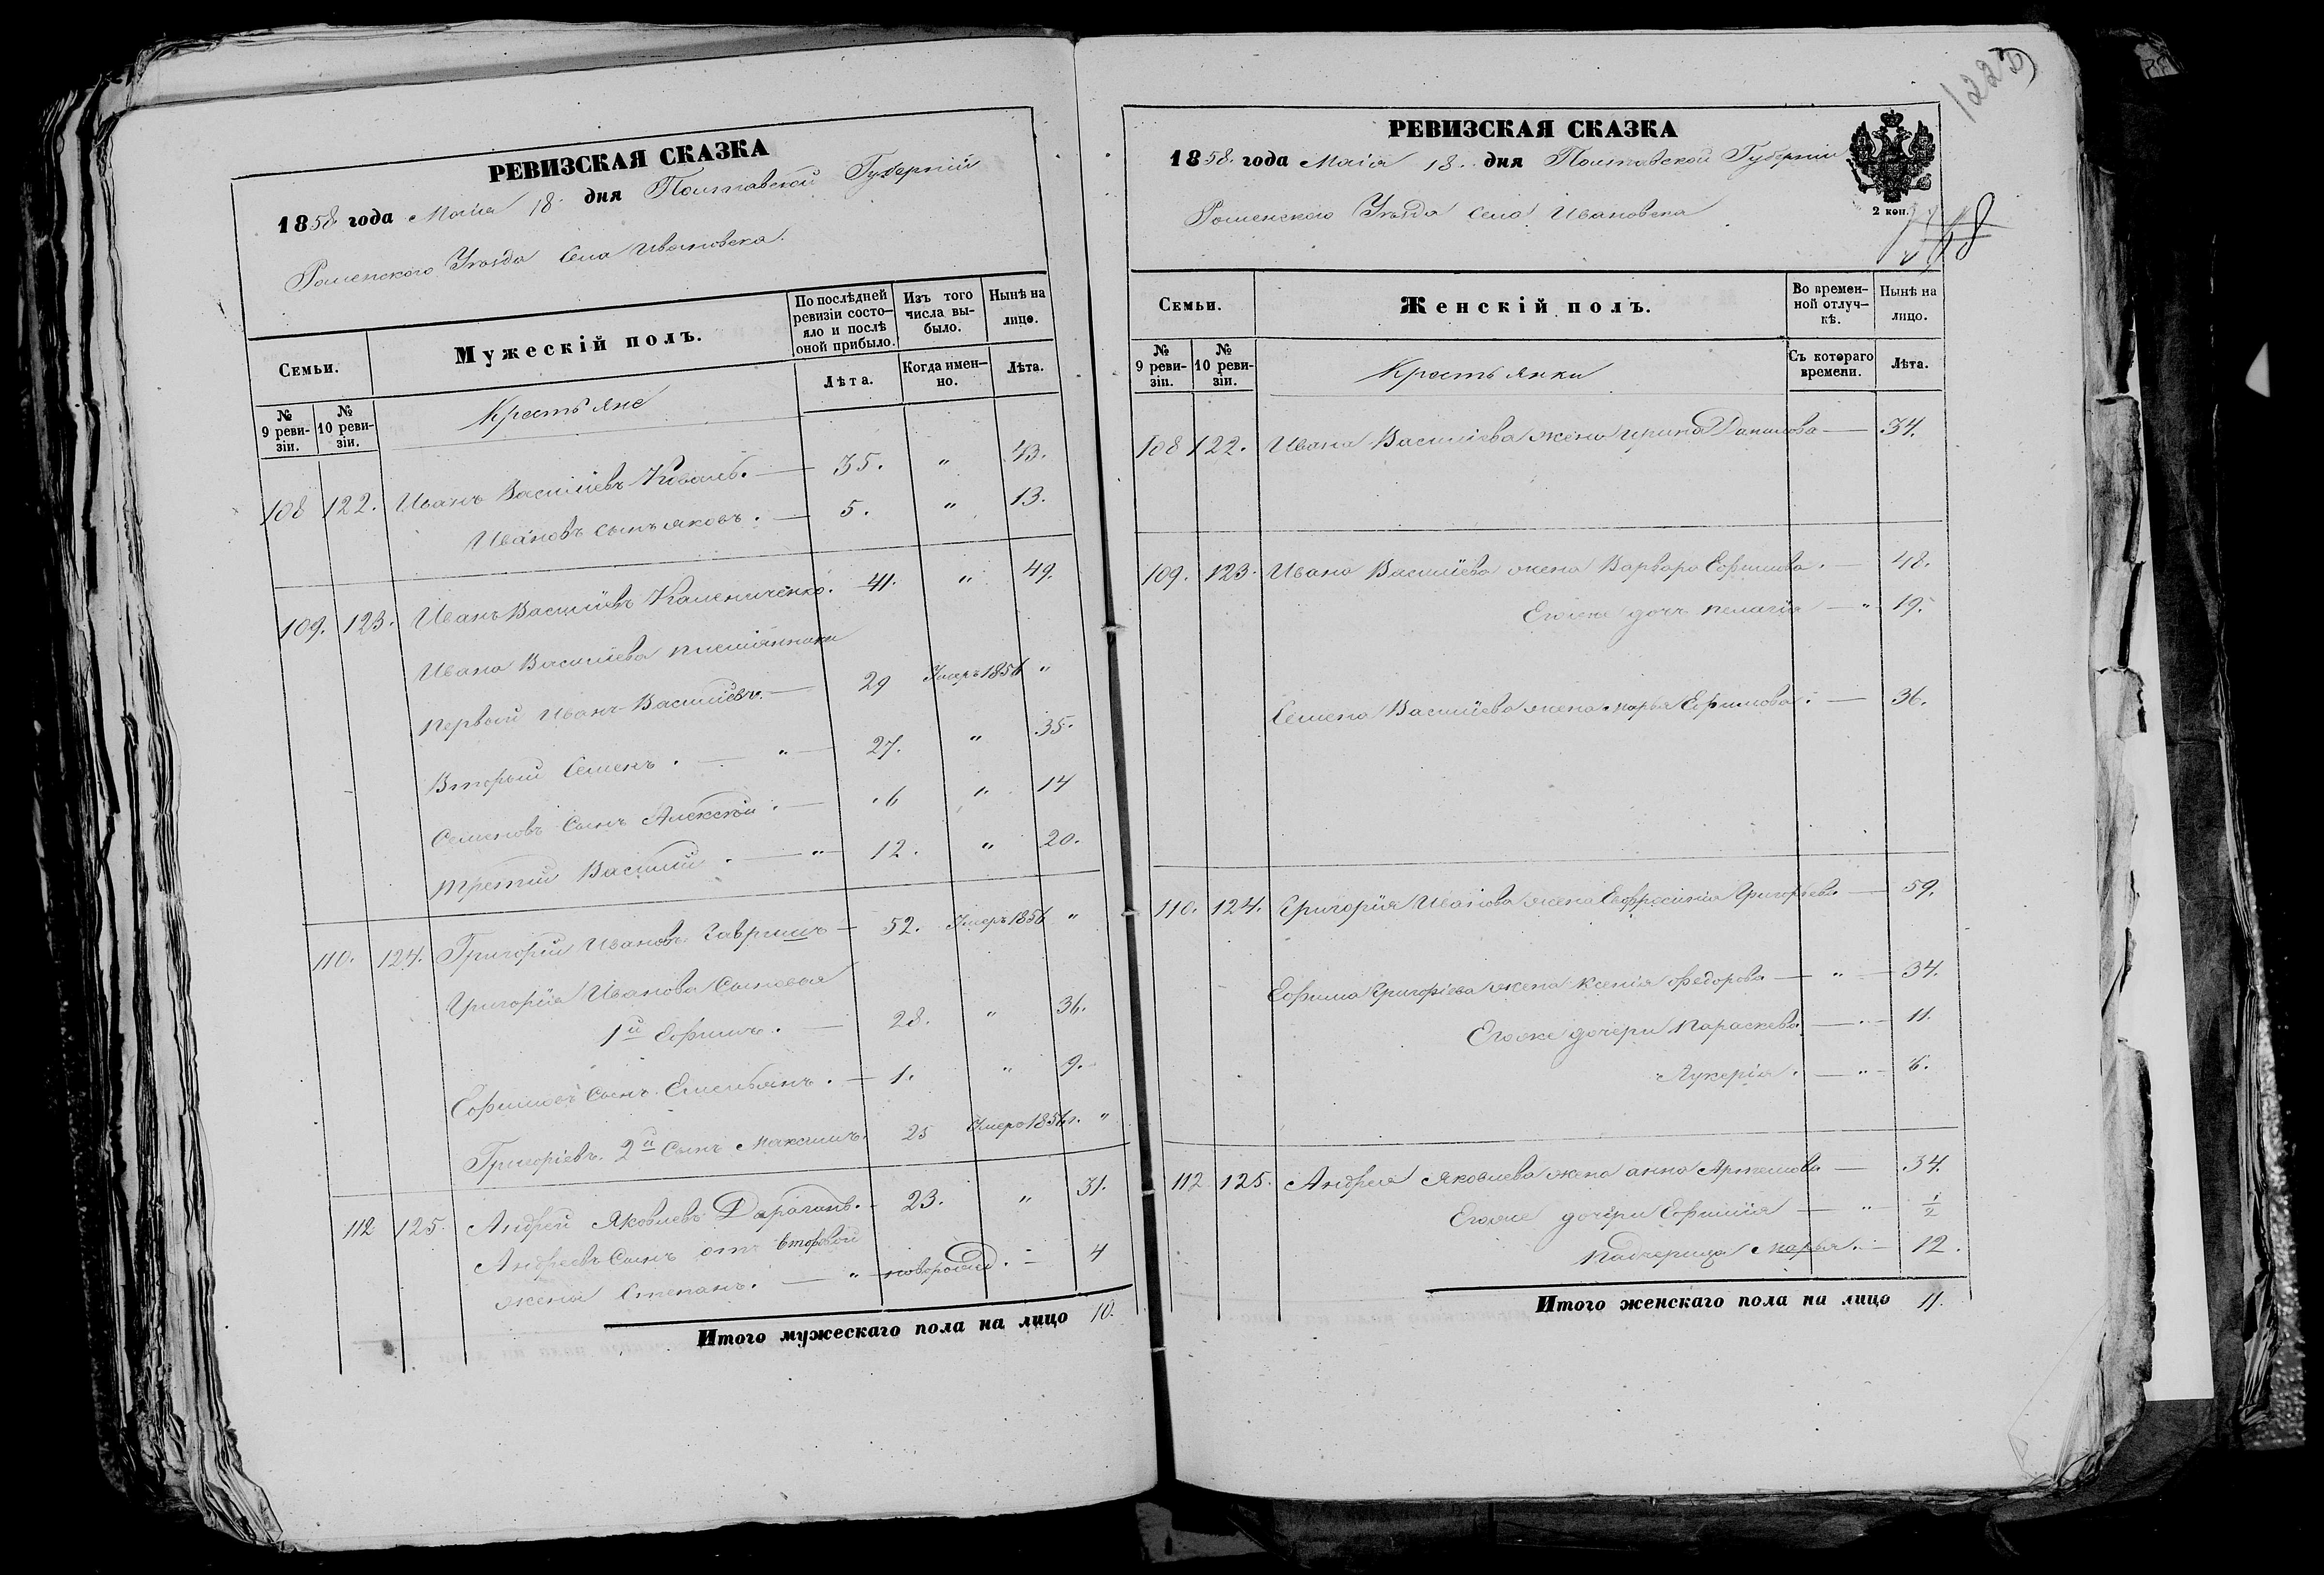 РЕВИЗСКАЯ СКАЗКА
1858 года Маія 18. дня Полтавской Губерніи
Роменского Уѣзда Села Ивановска.
Семьи.
Мужескій полъ.
По послѣдней ревизіи состояло и послѣ оной прибыло.
Изъ того числа выбыло.
Нынѣ на лицо.
№ 9 ревизіи.
№ 10 ревизіи.
Крестьяне
Лѣта.
Когда именно.
Лѣта.
108 122. Иванъ Василіевъ Коваль. — 35. " 43.
Ивановъ сынъ яковъ. — 5. " 13.
109. 123. Иванъ Василіевъ Калениченко. 41. " 49.
Ивана Василіева племянники
первый Иванъ Василіевъ — 29 Умеръ 1856 "
Вторый Семенъ. — " — 27. " 35.
Семеновъ Сынъ Алексѣй. — 6 " 14
третій Василій. — " — 12. " 20.
110. 124. Григорій Ивановъ Гавришъ — 52. Умеръ 1856 "
Григорія Иванова Сыновья
1й Ефимъ. — 28. " 36.
Ефимовъ Сынъ Емельянъ. — 1. " 9.
Григоріевъ 2й Сынъ Максимъ. 25 Умеръ 1856г. "
112. 125. Андрей Яковлевъ Дараганъ. — 23. " 31.
Андреевъ Сынъ отъ второвой
жены Степанъ. — " — новорожд. — 4
Итого мужескаго пола на лицо 10.
РЕВИЗСКАЯ СКАЗКА
1858 года Маія 18. дня Полтавской Губерніи
Роменского Уѣзда Села Ивановска
2 коп.
1223
Семьи.
Женскій полъ.
Во временной отлучкѣ.
Нынѣ на лицо.
№ 9 ревизіи.
№ 10 ревизіи.
Крестьянки
Съ котораго времени.
Лѣта.
108 122. Ивана Василіева жена ирина Данилова — 34.
109. 123. Ивана Василіева жена Варвара Ефимова. — 48.
Егоже дочь пелагія — " 19.
Семена Василіева жена марья Ефимова. — 36.
110. 124. Григорія Иванова жена Евфросинія Григорьева — 59.
Ефима Григоріева жена Ксенія федорова — " — 34.
Егоже дочери Параскева — " — 11.
Лукерія. — " — 6.
112 125. Андрея Яковлева жена анна Артемова — 34.
Егоже дочери Ефимія — " — 1/2
падчерица марья. — 12.
Итого женскаго пола на лицо 11.